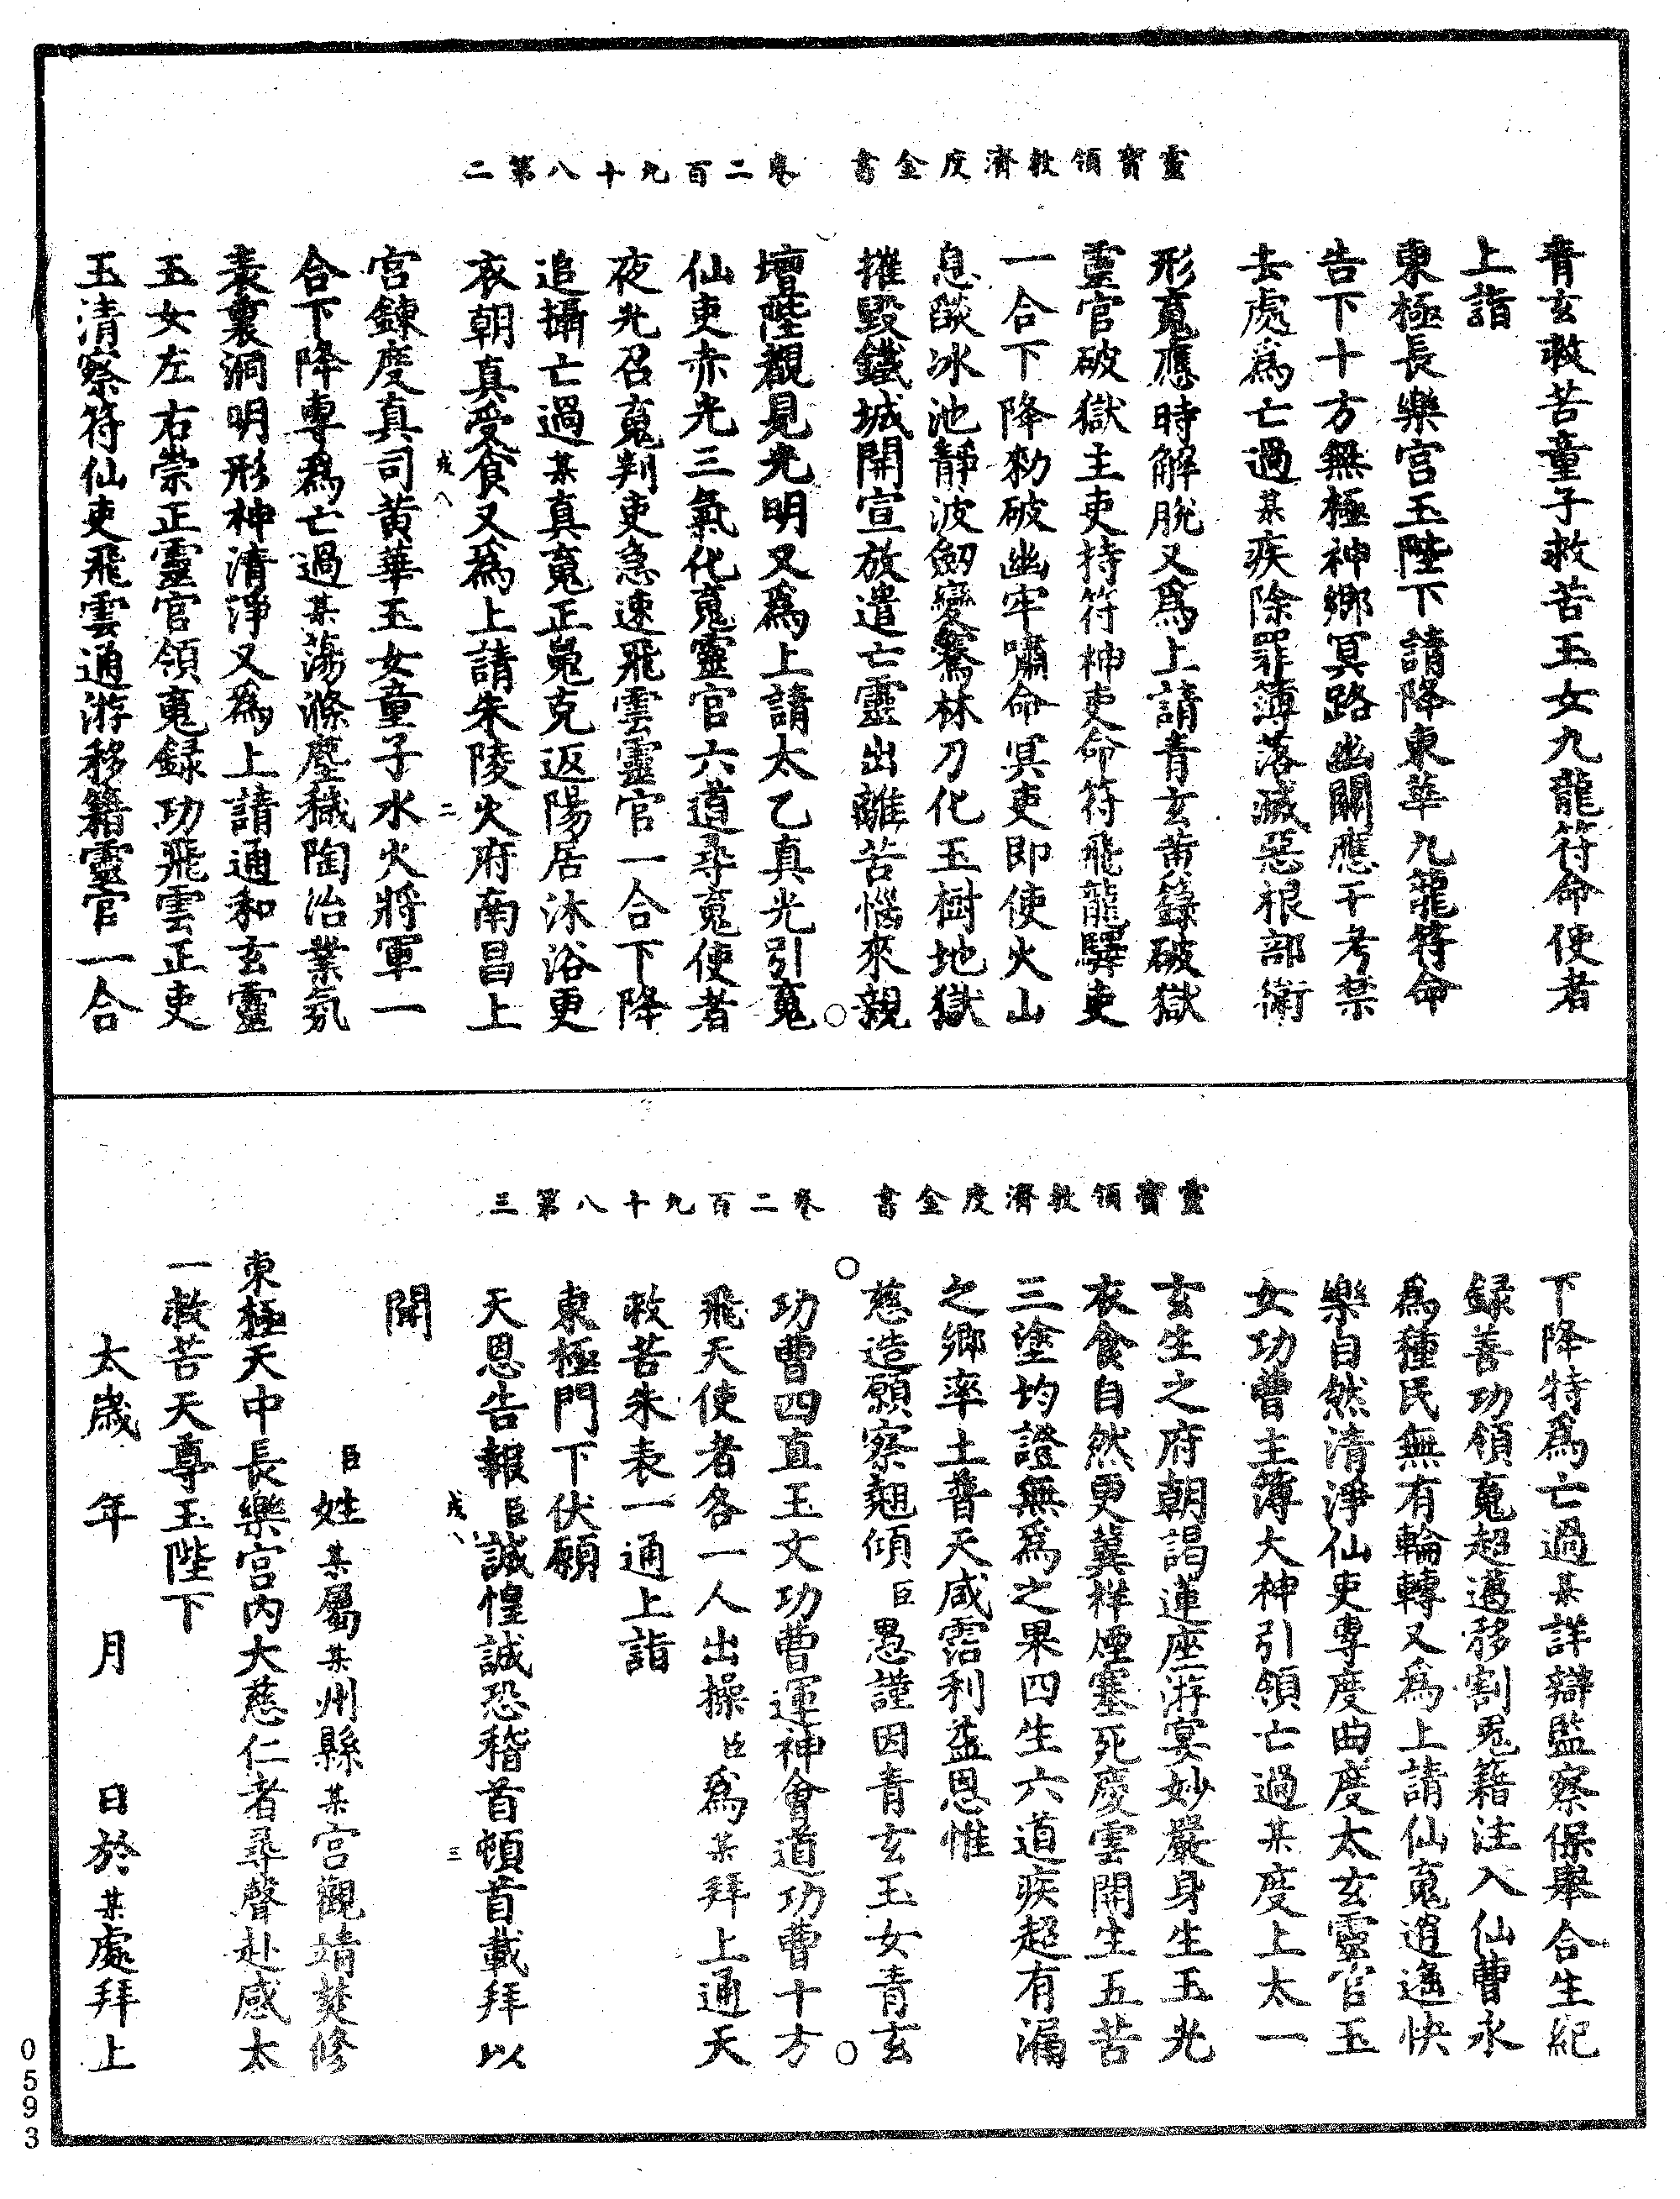 靈寶領教濟度金書　卷二百九十八第二
青玄救苦童子救苦玉女九龍符命使者
上詣
東極長樂宮玉陛下請降東華九龍符命
告下十方無極神鄉冥路幽關應干考禁
去處爲亡過某疾除罪簿落滅惡根部衛
形䰟應時解脫又爲上請青玄黄籙破獄
靈官破獄主吏持符神吏命符飛龍驛吏
一合下降勑破幽牢嘯命冥吏即使火山
息燄冰池靜波劒變騫林刀化玉樹地獄
摧毀鐵城開宣放遣亡靈出離苦惱來親
壇陛觀見光明又爲上請太乙真光引䰟
仙吏赤光三氣化䰟靈官六道尋䰟使者
夜光召䰟判吏急速飛雲靈官一合下降
追攝亡過某真䰟正䰟克返陽居沐浴更
衣朝真受食又爲上請朱陵火府南昌上
戎八　二
宮鍊度真司黄華玉女童子水火將軍一
合下降專爲亡過某蕩滌塵穢陶治業氛
表裏洞明形神清淨又爲上請通和玄靈
玉女左右崇正靈官領䰟録功飛雲正吏
玉清察符仙吏飛雲通游移籍靈官一合
靈寶領教濟度金書　卷二百九十八第三
下降特爲亡過某詳辯監察保舉合生紀
録善功領䰟超邁移割鬼籍注入仙曹永
爲種民無有輪轉又爲上請仙䰟逍遙快
樂自然清淨仙吏專度曲度太玄靈官玉
女功曹主簿大神引領亡過某度上太一
玄生之府朝謁蓮座游宴妙嚴身生玉光
衣食自然更冀祥煙塞死慶雲開生五苦
三塗均證無爲之果四生六道疾超有漏
之鄉率土普天咸霑利益恩惟
慈造願察翹傾臣愚謹因青玄玉女青玄
功曹四直玉文功曹運神會道功曹十方
飛天使者各一人出操臣爲某拜上通天
救苦朱表一通上詣
東極門下伏願
天恩告報臣誠惶誠恐稽首頓首載拜以
戎八　三
聞
臣姓某屬某州縣某宮觀靖焚修
東極天中長樂宮內大慈仁者尋聲赴感太
一救苦天尊玉陛下
太歲　年　月　日於某處拜上
0593